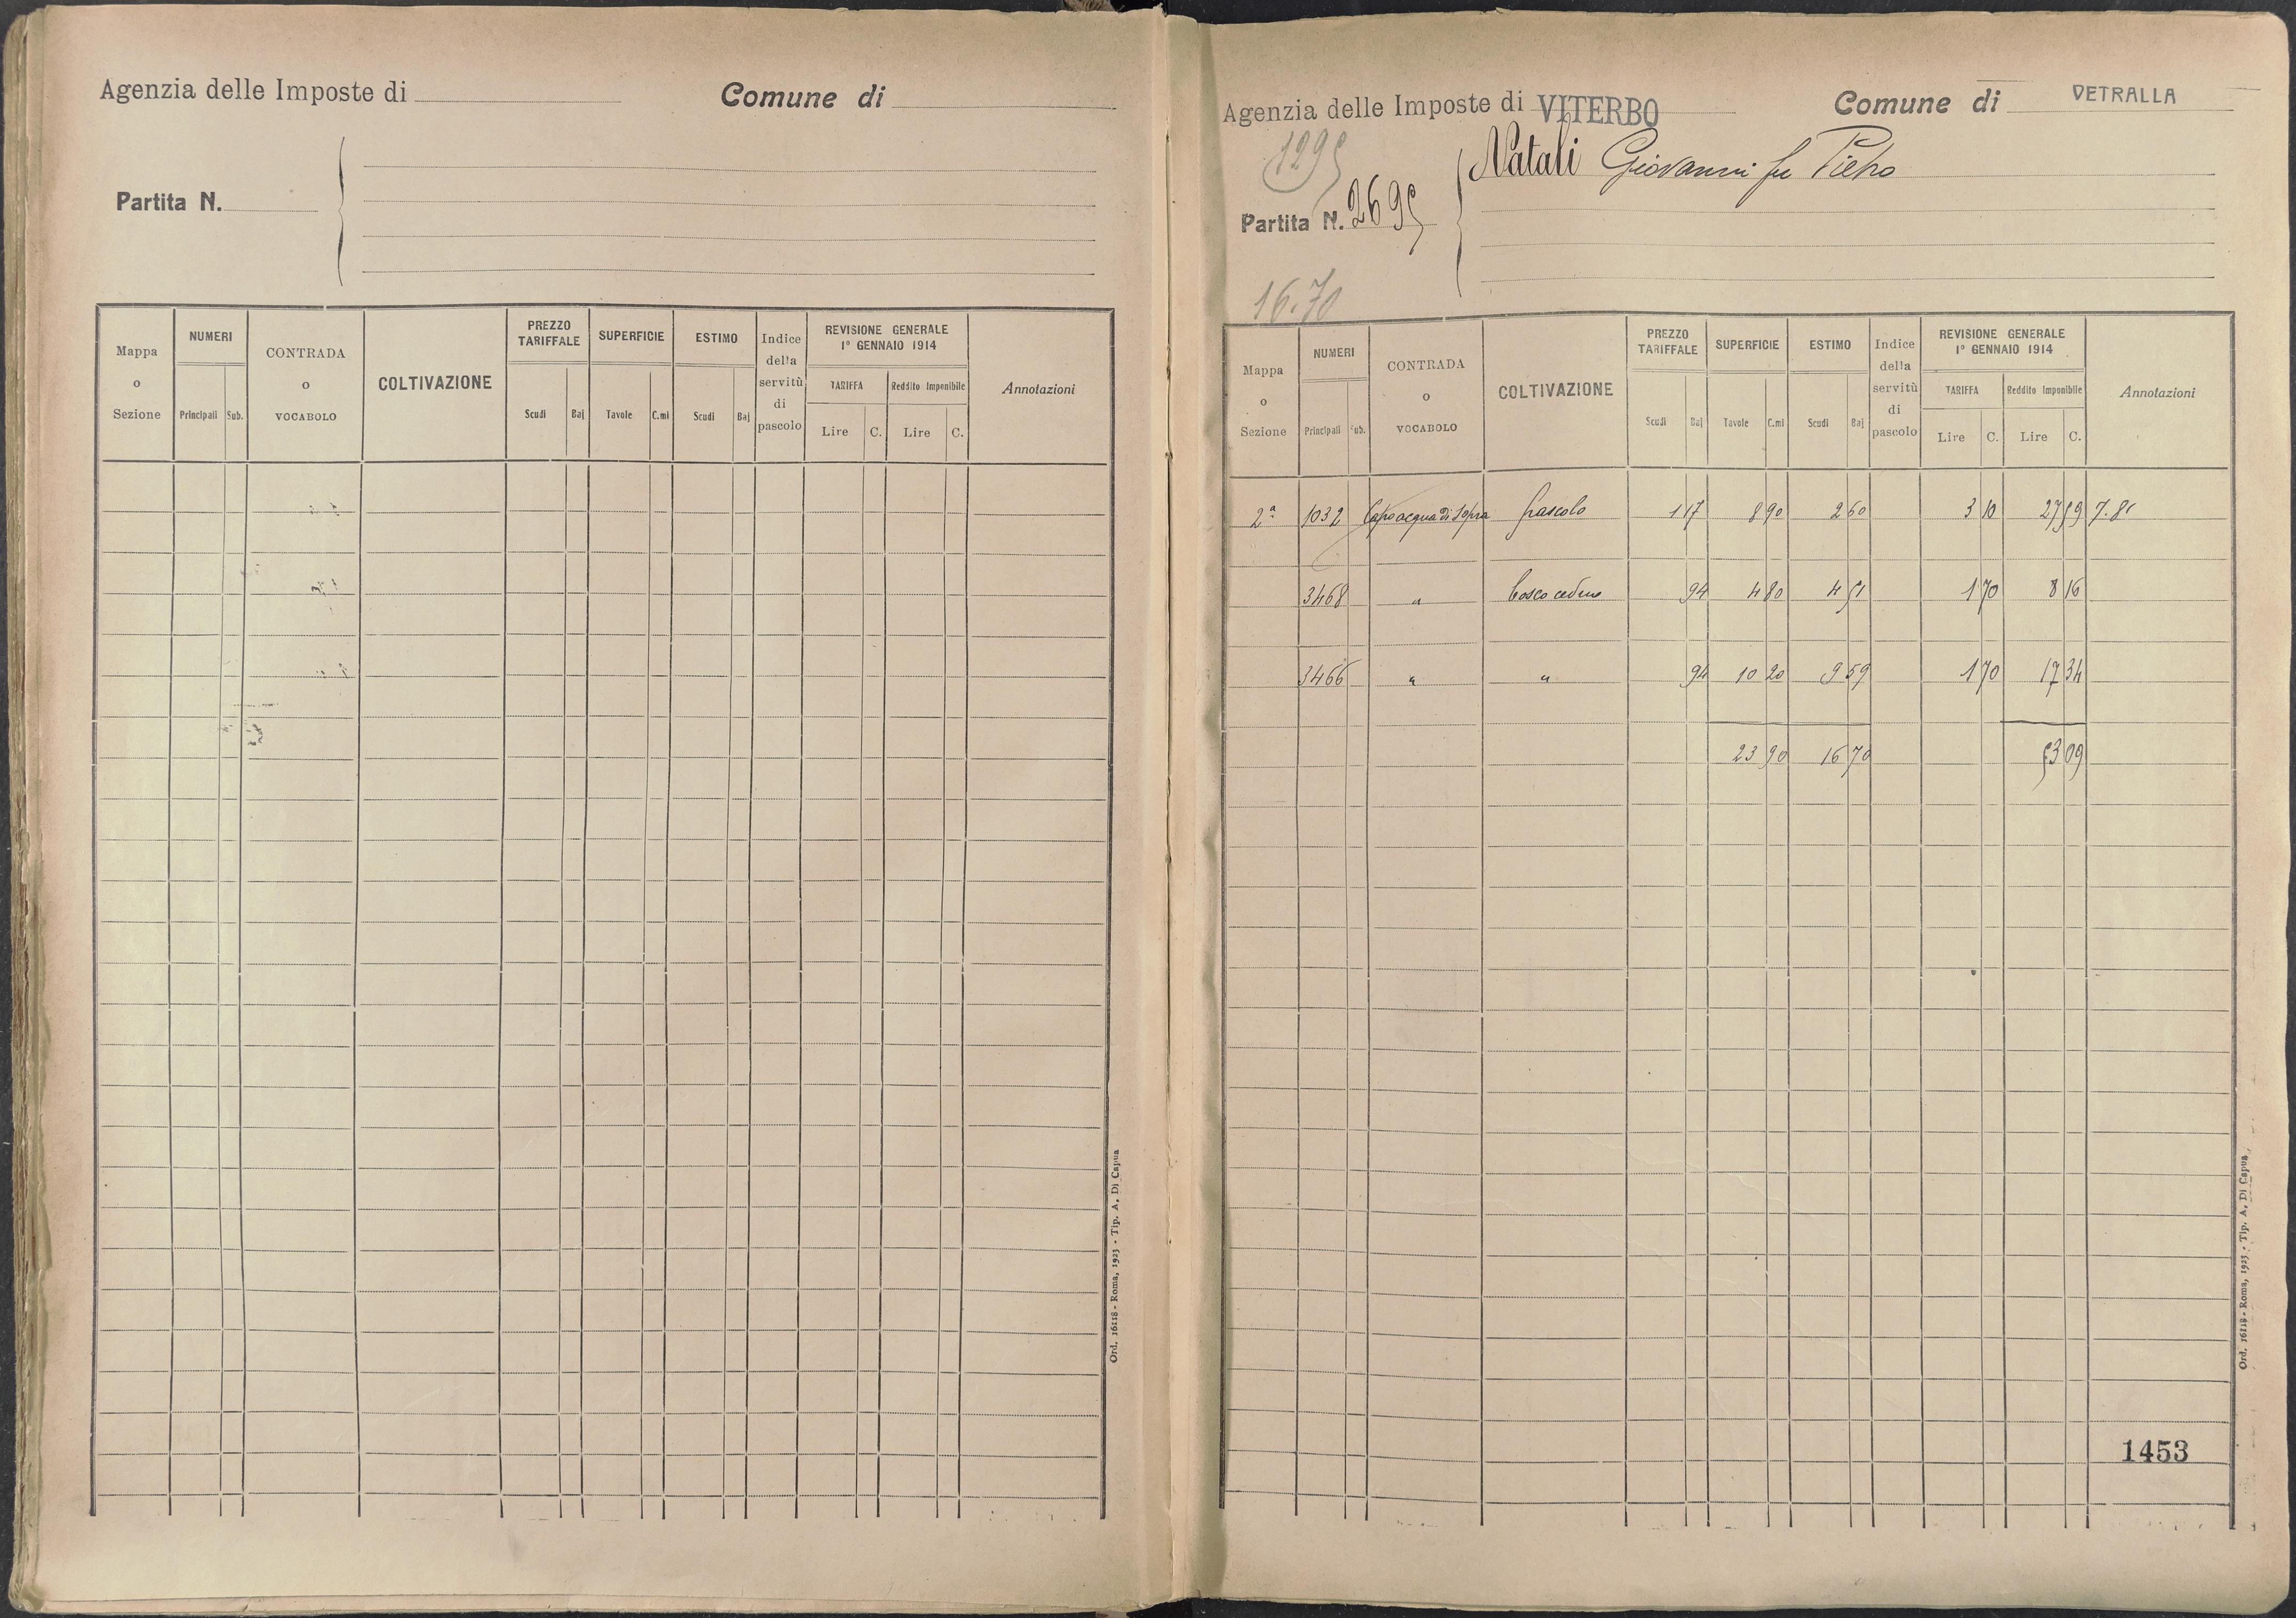 Agenzia delle Imposte di
Comune di
Partita N.
Mappa o Sezione
NUMERI
Principali Sub.
CONTRADA o VOCABOLO
COLTIVAZIONE
PREZZO TARIFFALE
Scudi Baj
SUPERFICIE
Tavole C.mi
ESTIMO
Scudi Baj
Indice della servitù di pascolo
REVISIONE GENERALE
1° GENNAIO 1914
TARIFFA
Lire C.
Reddito Imponibile
Lire C.
Annotazioni
Ord. 16118 - Roma, 1923 - Tip. A. Di Capua
Agenzia delle Imposte di VITERBO
Comune di VETRALLA
1295
Natali Giovanni fu Pietro
Partita N. 2695
16.70
Mappa o Sezione
NUMERI
Principali Sub.
CONTRADA o VOCABOLO
COLTIVAZIONE
PREZZO TARIFFALE
Scudi Baj
SUPERFICIE
Tavole C.mi
ESTIMO
Scudi Baj
Indice della servitù di pascolo
REVISIONE GENERALE
1° GENNAIO 1914
TARIFFA
Lire C.
Reddito Imponibile
Lire C.
Annotazioni
2ª 1032 Capoacqua di Sopra Pascolo 1 17 8 90 2 60 3 10 27 59
3468 " Bosco ceduo 94 4 80 4 51 1 70 8 16
3466 " " 94 10 20 9 59 1 70 17 34
23 90 16 70 53 09
1453
Ord. 16118 - Roma, 1923 - Tip. A. Di Capua